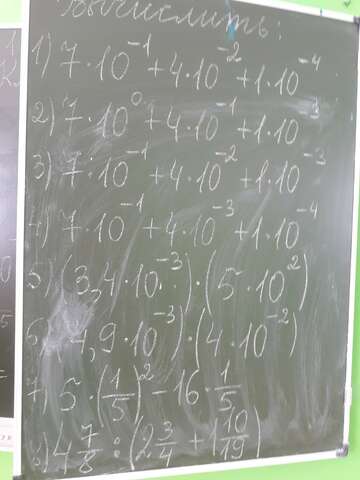 Вычислить:
1) 7·10⁻¹+4·10⁻²+1·10⁻⁴
2) 7·10⁰+4·10⁻¹+1·10⁻³
3) 7·10⁻¹+4·10⁻²+1·10⁻³
4) 7·10⁻¹+4·10⁻³+1·10⁻⁴
5) (3,4·10⁻³)·(5·10²)
6) (4,9·10⁻³)·(4·10⁻²)
7) 5·(1/5)²-16·1/5
8) 4 7/8 : (2 3/4 + 1 10/19)